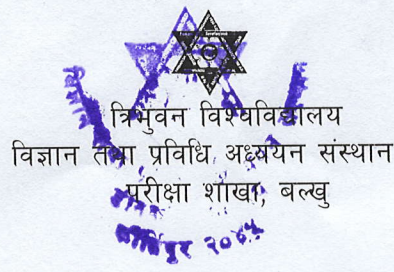 त्रिभुवन विश्वविद्यालय
विज्ञान तथा प्रविधि अध्ययन संस्थान
परीक्षा शाखा, बल्खु